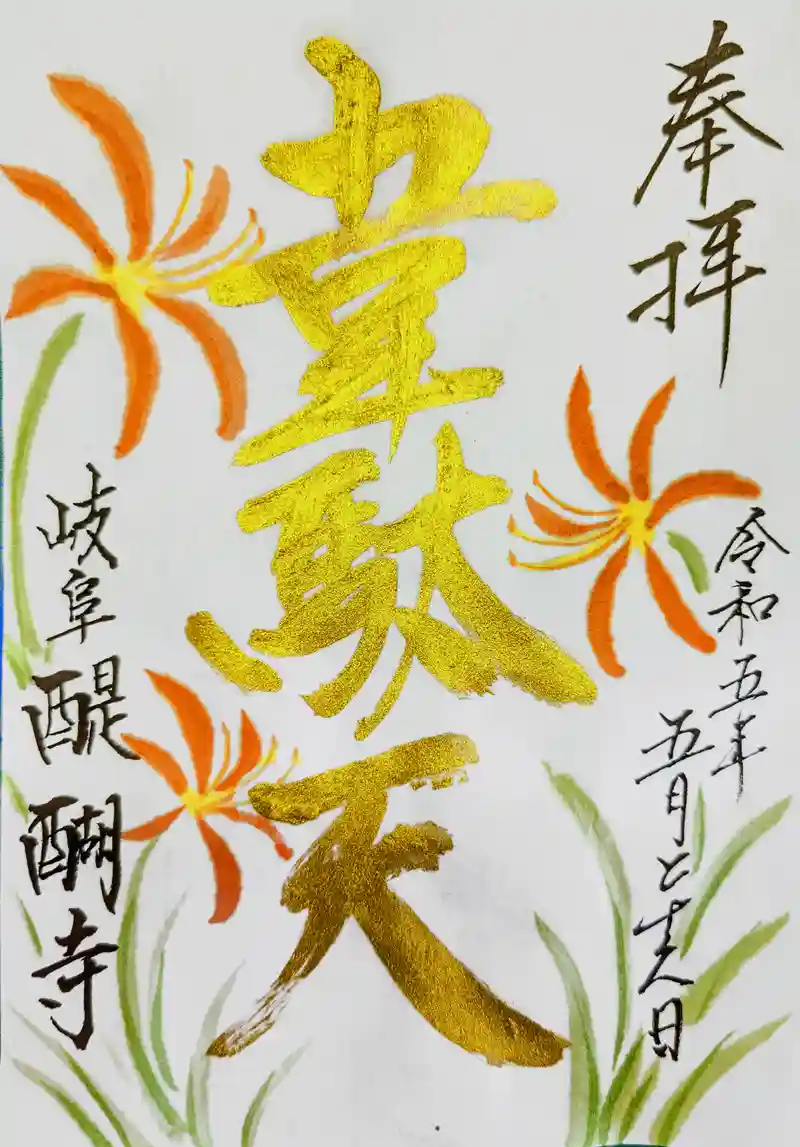 奉拝
令和五年
五月日
韋駄天
岐阜 醍醐寺